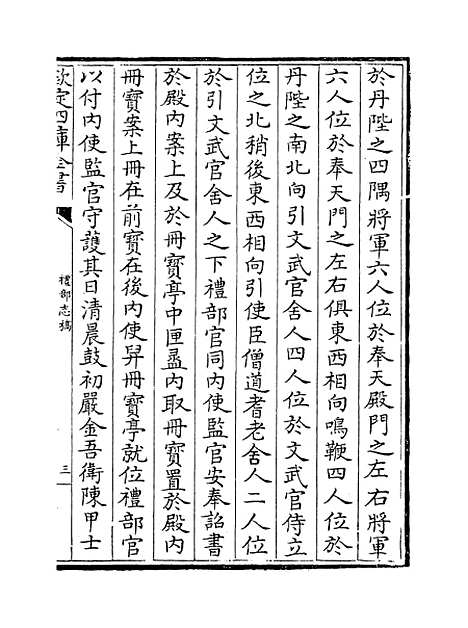 於丹陛之四隅將軍六人位於奉天殿門之左右將軍
六人位於奉天門之左右俱東西相向鳴鞭四人位於
丹陛之南北向引文武官舍人四人位於文武官侍立
位之北稍後東西相向引使臣僧道耆老舍人二人位
於引文武官舍人之下禮部官同內使監官安奉詔書
於殿內案上及於冊寳亭中匣盝內取冊寳置於殿內
冊寳案上冊在前寳在後內使舁冊寳亭就位禮部官
以付內使監官守護其日清晨鼓初嚴金吾衛陳甲士
欽定四庫全書
禮部志稿
三